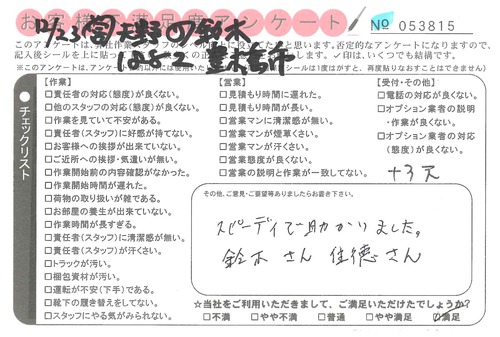 お客様満足度アンケート
№ 053815
鈴木
記入後シールを上に貼って
✓印は、いくつでも結構です。
チェックリスト
【作業】
□責任者の対応(態度)が良くない。
□他のスタッフの対応(態度)が良くない。
□作業を見ていて不安がある。
□責任者(スタッフ)に好感が持てない。
□お客様への挨拶が出来ていない。
□ご近所への挨拶・気遣いが無い。
□作業開始前の内容確認がなかった。
□作業開始時間が遅れた。
□荷物の取り扱いが雑である。
□お部屋の養生が出来ていない。
□作業時間が長すぎる。
□責任者(スタッフ)に清潔感が無い。
□責任者(スタッフ)が汗くさい。
□トラックが汚い。
□梱包資材が汚い。
□運転が不安(下手)である。
□靴下の履き替えをしてない。
□スタッフにやる気がみられない。
【営業】
□見積もり時間に遅れた。
□見積もり時間が長い。
□営業マンに清潔感が無い。
□営業マンが煙草くさい。
□営業マンが汗くさい。
□営業態度が良くない。
□営業の説明と作業が一致してない。
【受付・その他】
□電話の対応が良くない。
□オプション業者の説明・作業が良くない。
□オプション業者の対応(態度)が良くない。
その他、ご意見・ご要望等ありましたらお書き下さい。
スピーディで助かりました。
鈴木さん 佳徳さん
☆当社をご利用いただきまして、ご満足いただけたでしょうか?
□不満 □やや不満 □普通 □やや満足 ☑満足